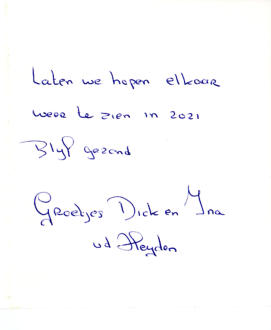 Laten we hopen elkaar
weer te zien in 2021
Blijf gezond
Groetjes Dick en Ina
vd Heyden